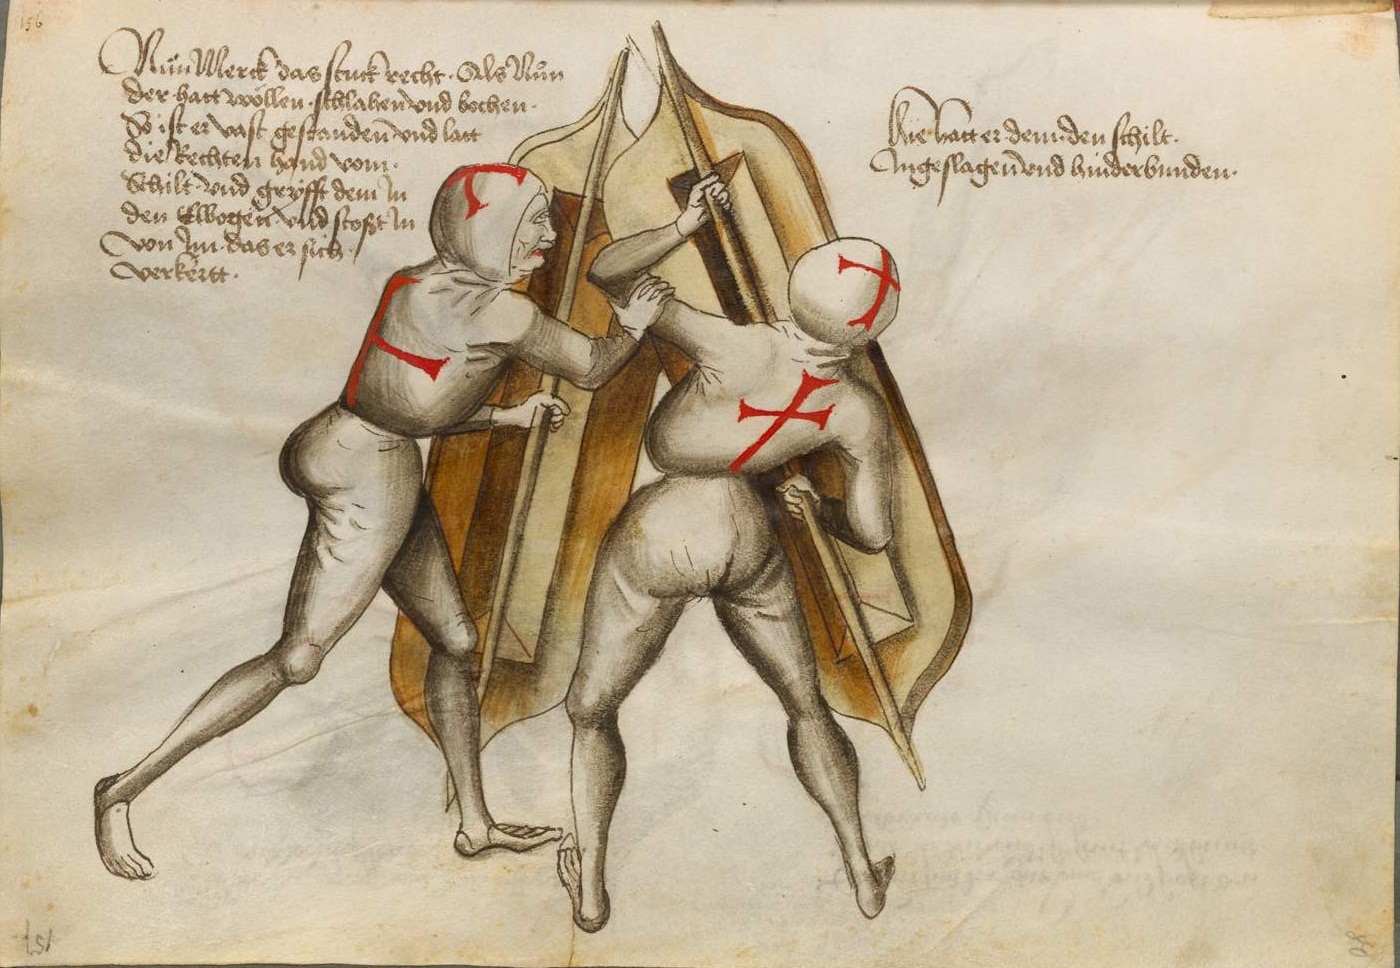 156
Nün Merck das stuck recht. Als Nün
der hatt wöllen schlahen und bochen.
So ist er vast gestanden und latt
die Rechten hand vom.
Schilt. und gryfft dem In
den Elbogen und stoszt In
von Im. das er sich
verkertt.
Hie hatt er dem den schilt.
Ingeslagen und hinderbunden.
151